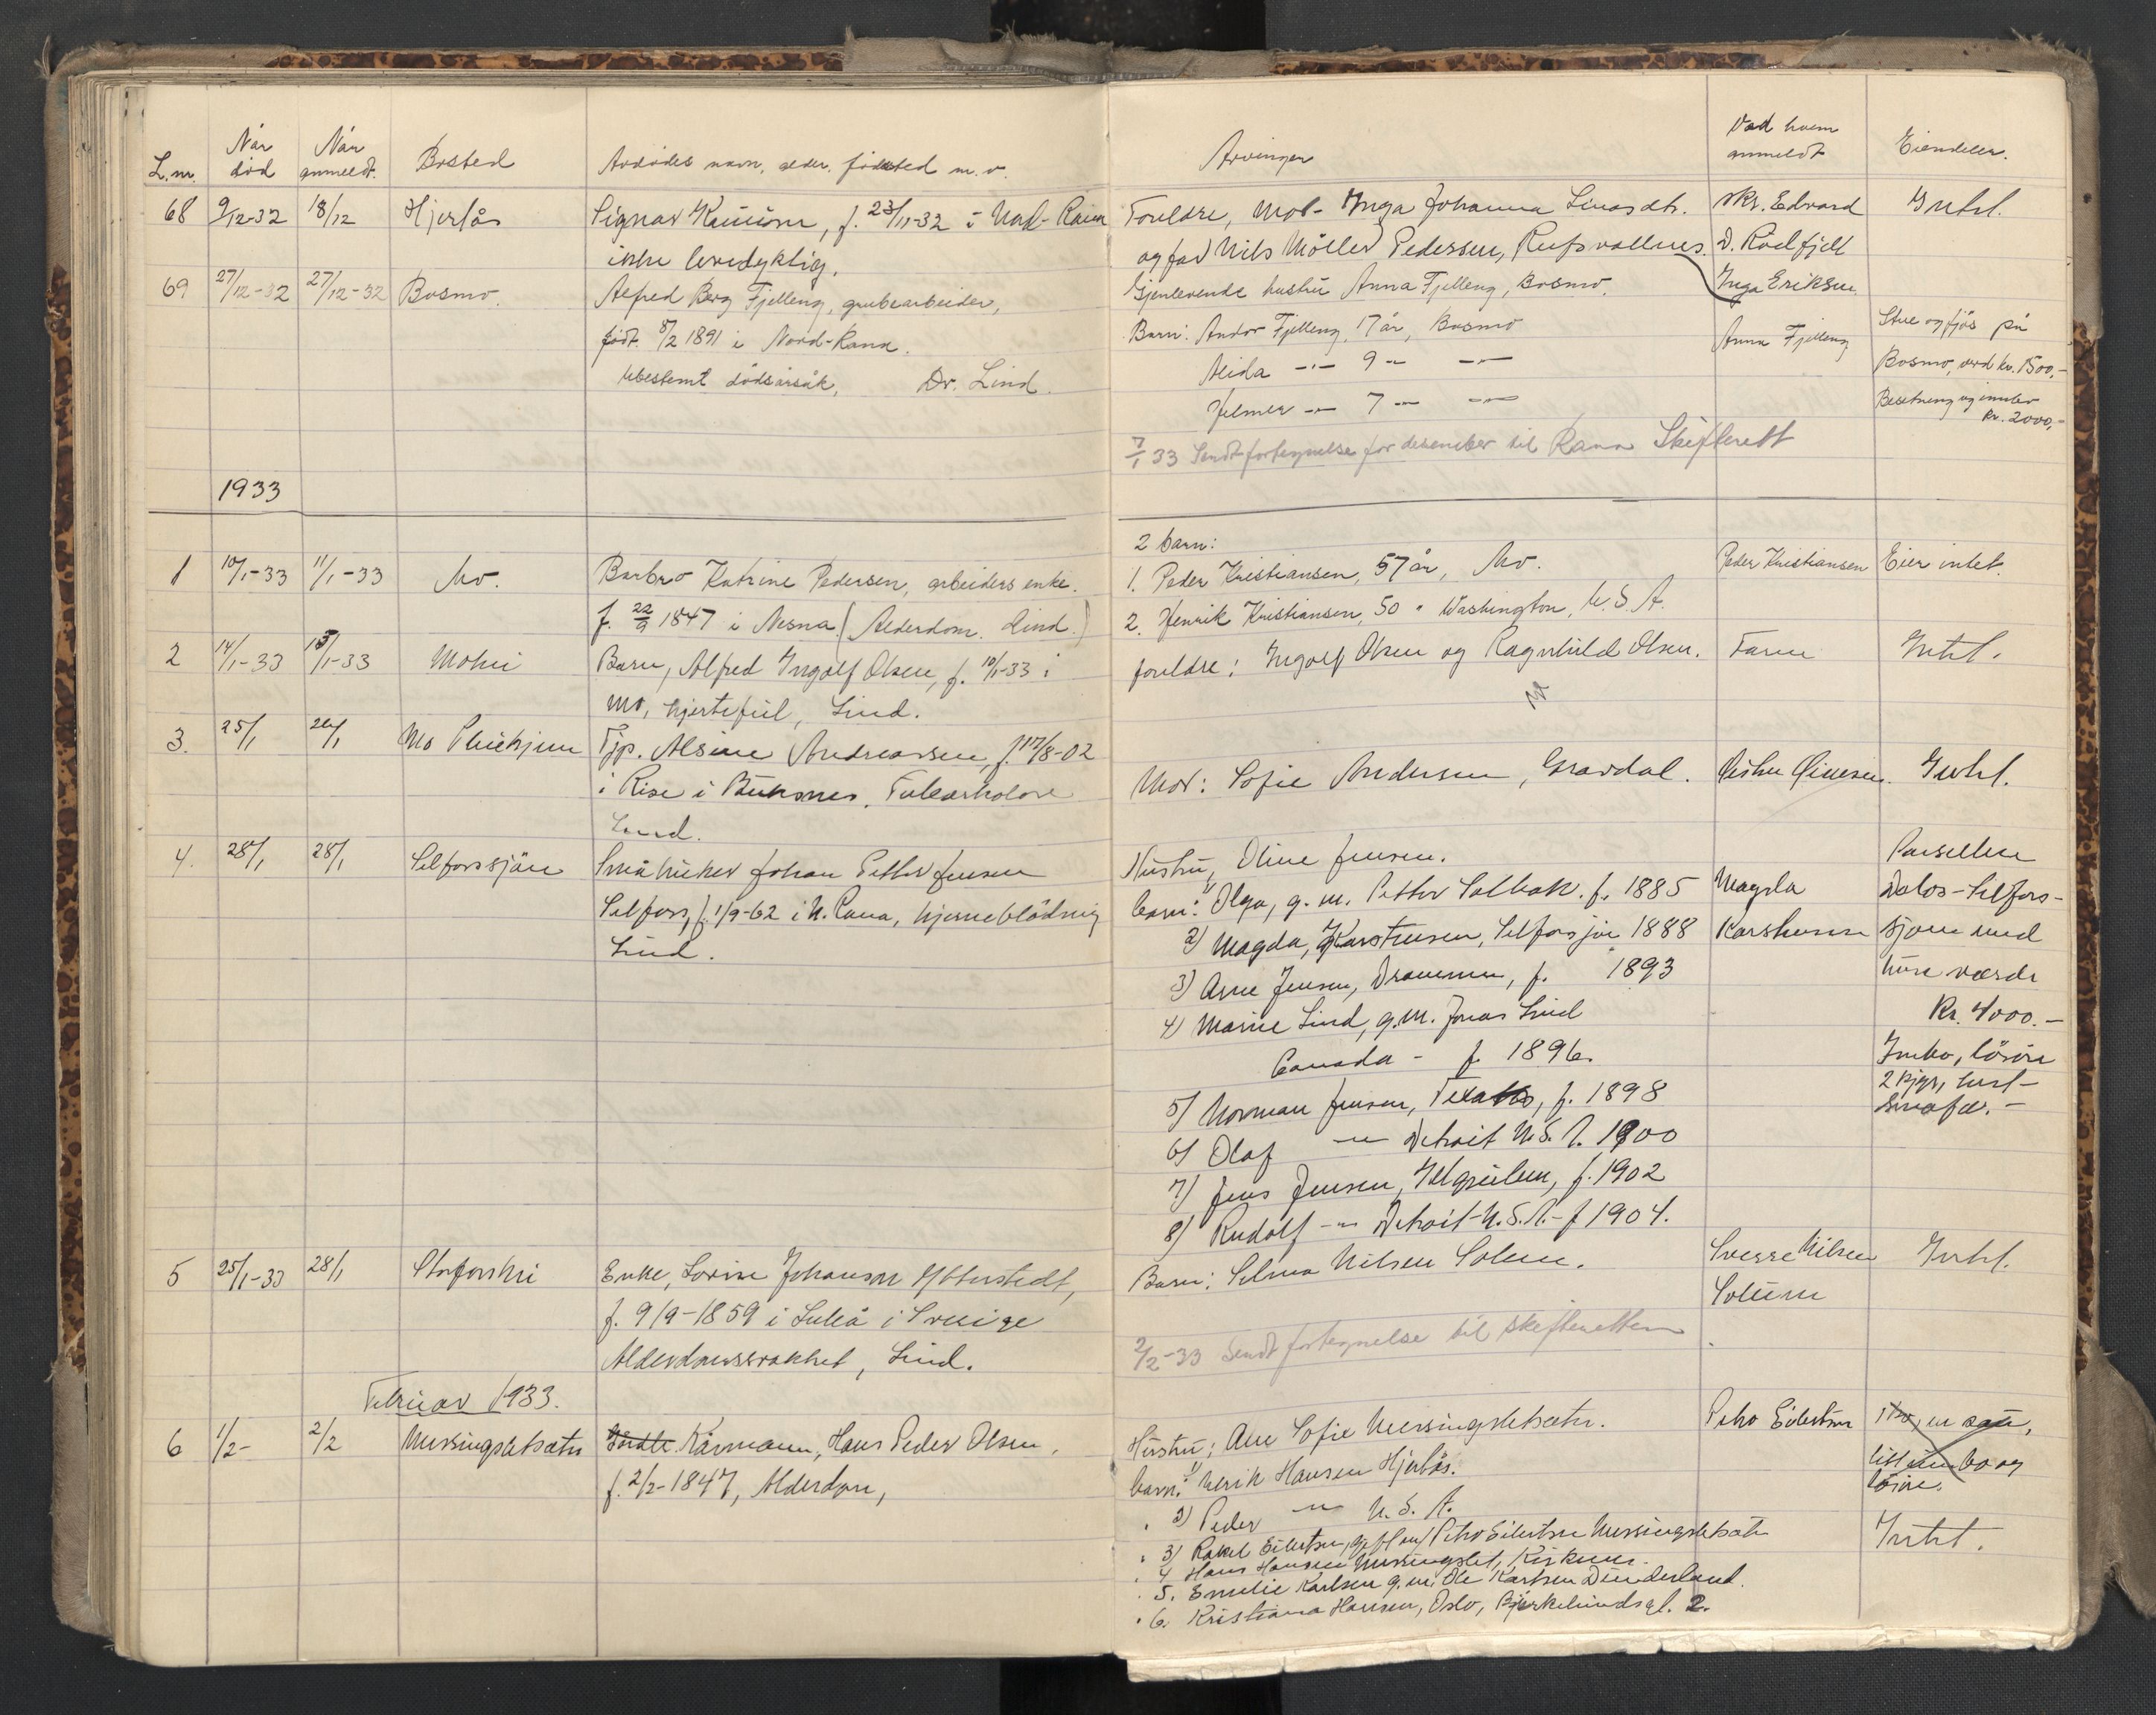 L.nr. Når død Når anmeldt. Bosted Avdødes navn, alder, fødested m.v. Arvinger Ved hvem anmeldt Eiendeler.
68 9/12-32 18/12 Hjerlås Signar f. 23/11-32 i Nord-Rana Foreldre, Mor- Inga Johanna dtr. skr. Edvard Intet.
ikke levedyktig. og far Nils Möller Pedersen, Rufsvollnes. D. Rödfjell
69 27/12-32 27/12-32 Bosmo. Alfred Berg Fjelleng, grubearbeider, Gjenlevende hustru Anna Fjelleng, Bosmo. Inga Eriksen
født 8/2 1891 i Nord-Rana. Barn: Andor Fjelleng, 17 år, Bosmo Anna Fjelleng Stue og fjös på
Ubestemt dödsårsak, Dr. Lind. Alida -"- 9 -"- -"- Bosmo, verd kr. 1500,-
Hilmer -"- 7 -"- -"- Besetning og innbo
kr. 2000,-
7/1 33 Sendt fortegnelse for desember til Rana Skifterett
1933
2 barn:
1 10/1-33 11/1-33 Mo. Barbro Katrine Pedersen, arbeiders enke. 1. Peder Kristiansen, 57 år, Mo. Peder Kristiansen Eier intet.
f. 22/9 1847 i Nesna. (Alderdom. Lind.) 2. Henrik Kristiansen, 50 " Washington, U.S.A.
2 14/1-33 15/1-33 Mohei Barn, Alfred Ingolf Olsen, f. 10/1-33 i foreldre: Ingolf Olsen og Ragnhild Olsen. Faren Intet.
Mo, hjertefeil, Lind.
3. 25/1 26/1 Mo Pleiehjem Tjp. Alsine Andreassen, f. 17/8-02
i Rise i Buksnes. Tuberkolose Mor: Sofie Andersen, Gravdal. Intet.
Lind.
4. 28/1 28/1 Selforssjöen Småbruker Johan Petter Jensen Hustru, Oline Jensen. Parsellen
Selfors, f. 1/9-62 i N. Rana, hjerneblödning barn: 1) Olga, g.m. Petter Solbak. f. 1885 Magda Dalos-Selfors-
Lind. 2) Magda, Karstensen, Selforsjöen 1888 Karstensen sjoen med
3) Arne Jensen, Drammen, f. 1893 huse værdi
4) Marie Lind, g.m. Jonas Lind Kr. 4000.-
Canada - f. 1896. Innbo, lösöre
5) Norman Jensen, Texas, f. 1898 2 kjyr, hest-
6) Olaf -"- Detroit U.S.A. 1900 småfe.-
7) Jens Jensen, Helgeilen, f. 1902
8) Rudolf -"- Detroit-U.S.A.- f 1904.
5 25/1-33 28/1 Storforshei Enke, Lovise Johanson Ytterstedt, Barn: Selma Nilsen Solum. Sverre Nilsen Intet.
f. 9/9-1859 i Luleå i Sverige Solum
Alderdomssvakhet, Lind. 2/2-33 Sendt fortegnelse til skifteretten
Februar 1933.
6 1/2- 2/2 Messingsletsæter Kårmann, Hans Peder Olsen, Hustru: Ane Sofie Messingsletsæter. Petro Eilertsen
f. 2/2-1847, Alderdom, barn: 1) Henrik Hansen Hjerlås. litt innbo og
" 2) Peder -"- U.S.A. lösöre.
" 3) Rakel Eilertsen, gift m/ Petro Eilertsen Messingsletsæter
" 4 Hans Hansen Messingslet, Kirknes. Intet.
" 5. Emelie Karlsen g.m. Ole Karlsen Dunderland.
" 6. Kristiana Hansen, Oslo, Bjerkelundsgt. 2.